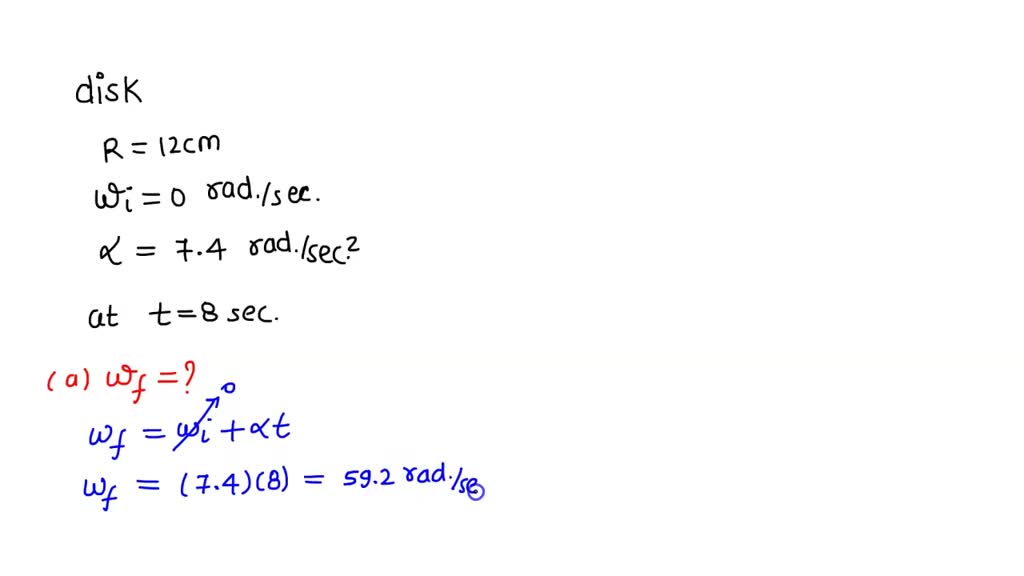 disk
R = 12cm
ωi = 0 rad./sec.
α = 7.4 rad./sec²
at t = 8 sec.
(a) ωf = ?
ωf = ωi + αt
0
ωf = (7.4)(8) = 59.2 rad./se